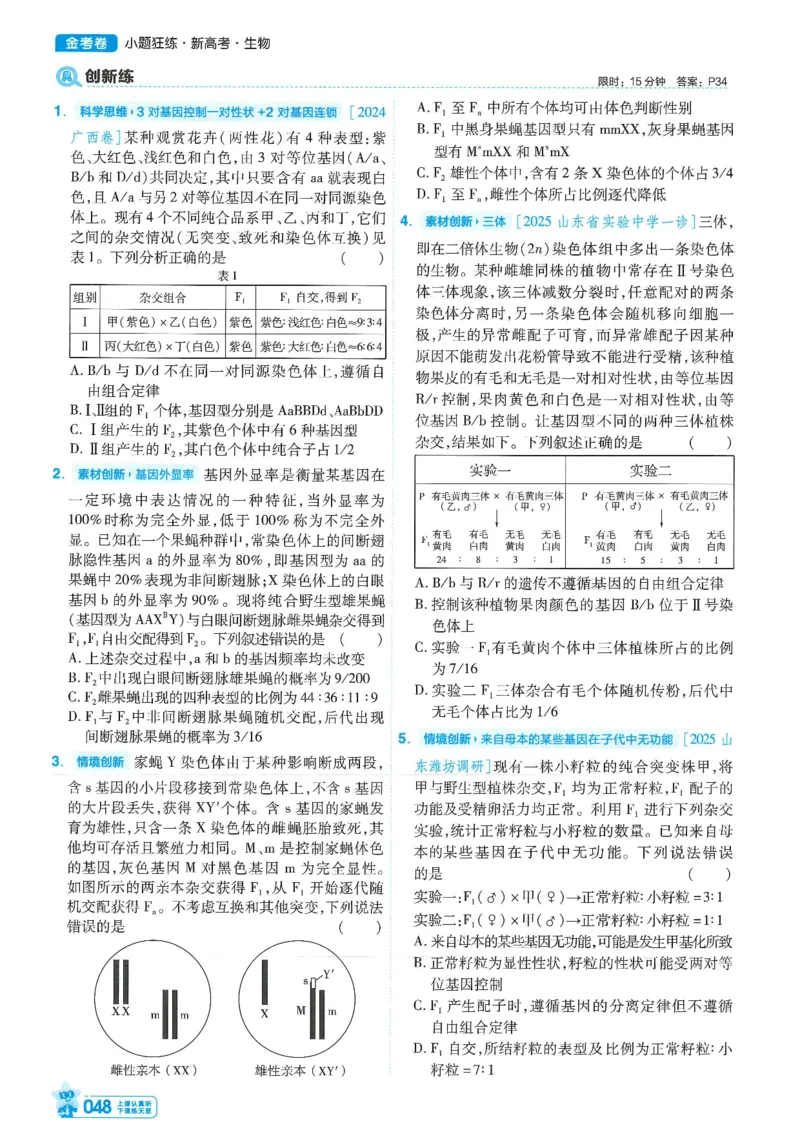 金考卷 小题狂练·新高考·生物
创新练
限时：15分钟 答案：P34
1. 科学思维·3对基因控制一对性状+2对基因连锁 [2024
广西卷]某种观赏花卉(两性花)有4种表型:紫
色、大红色、浅红色和白色,由3对等位基因(A/a、
B/b和D/d)共同决定,其中只要含有aa就表现白
色,且A/a与另2对等位基因不在同一对同源染色
体上。现有4个不同纯合品系甲、乙、丙和丁,它们
之间的杂交情况(无突变、致死和染色体互换)见
表1。下列分析正确的是 ( )
表1
组别 杂交组合 F₁ F₁自交,得到F₂
Ⅰ 甲(紫色)×乙(白色) 紫色 紫色:浅红色:白色≈9:3:4
Ⅱ 丙(大红色)×丁(白色) 紫色 紫色:大红色:白色≈6:6:4
A. B/b与D/d不在同一对同源染色体上,遵循自
由组合定律
B. Ⅰ、Ⅱ组的F₁个体,基因型分别是AaBBDd、AaBbDD
C. Ⅰ组产生的F₂,其紫色个体中有6种基因型
D. Ⅱ组产生的F₂,其白色个体中纯合子占1/2
2. 素材创新·基因外显率 基因外显率是衡量某基因在
一定环境中表达情况的一种特征,当外显率为
100%时称为完全外显,低于100%称为不完全外
显。已知在一个果蝇种群中,常染色体上的间断翅
脉隐性基因a的外显率为80%,即基因型为aa的
果蝇中20%表现为非间断翅脉;X染色体上的白眼
基因b的外显率为90%。现将纯合野生型雄果蝇
(基因型为AAXᴮY)与白眼间断翅脉雌果蝇杂交得到
F₁,F₁自由交配得到F₂。下列叙述错误的是 ( )
A. 上述杂交过程中,a和b的基因频率均未改变
B. F₂中出现白眼间断翅脉雄果蝇的概率为9/200
C. F₂雌果蝇出现的四种表型的比例为44:36:11:9
D. F₁与F₂中非间断翅脉果蝇随机交配,后代出现
间断翅脉果蝇的概率为3/16
3. 情境创新 家蝇Y染色体由于某种影响断成两段,
含s基因的小片段移接到常染色体上,不含s基因
的大片段丢失,获得XY′个体。含s基因的家蝇发
育为雄性,只含一条X染色体的雌蝇胚胎致死,其
他均可存活且繁殖力相同。M、m是控制家蝇体色
的基因,灰色基因M对黑色基因m为完全显性。
如图所示的两亲本杂交获得F₁,从F₁开始逐代随
机交配获得Fₙ。不考虑互换和其他突变,下列说法
错误的是 ( )
X X m m
X s Y′ M m
雌性亲本(XX) 雄性亲本(XY′)
A. F₁至Fₙ中所有个体均可由体色判断性别
B. F₁中黑身果蝇基因型只有mmXX,灰身果蝇基因
型有MˢmXX和MˢmX
C. F₂雄性个体中,含有2条X染色体的个体占3/4
D. F₁至Fₙ,雌性个体所占比例逐代降低
4. 素材创新·三体 [2025山东省实验中学一诊]三体,
即在二倍体生物(2n)染色体组中多出一条染色体
的生物。某种雌雄同株的植物中常存在Ⅱ号染色
体三体现象,该三体减数分裂时,任意配对的两条
染色体分离时,另一条染色体会随机移向细胞一
极,产生的异常雌配子可育,而异常雄配子因某种
原因不能萌发出花粉管导致不能进行受精,该种植
物果皮的有毛和无毛是一对相对性状,由等位基因
R/r控制,果肉黄色和白色是一对相对性状,由等
位基因B/b控制。让基因型不同的两种三体植株
杂交,结果如下。下列叙述正确的是 ( )
实验一 实验二
P 有毛黄肉三体 × 有毛黄肉三体 P 有毛黄肉三体 × 有毛黄肉三体
(乙,♂) (甲,♀) (甲,♂) (乙,♀)
F₁ 有毛 有毛 无毛 无毛 F₁ 有毛 有毛 无毛 无毛
黄肉 白肉 黄肉 白肉 黄肉 白肉 黄肉 白肉
24 : 8 : 3 : 1 15 : 5 : 3 : 1
A. B/b与R/r的遗传不遵循基因的自由组合定律
B. 控制该种植物果肉颜色的基因B/b位于Ⅱ号染
色体上
C. 实验一F₁有毛黄肉个体中三体植株所占的比例
为7/16
D. 实验二F₁三体杂合有毛个体随机传粉,后代中
无毛个体占比为1/6
5. 情境创新·来自母本的某些基因在子代中无功能 [2025山
东潍坊调研]现有一株小籽粒的纯合突变株甲,将
甲与野生型植株杂交,F₁均为正常籽粒,F₁配子的
功能及受精卵活力均正常。利用F₁进行下列杂交
实验,统计正常籽粒与小籽粒的数量。已知来自母
本的某些基因在子代中无功能。下列说法错误
的是 ( )
实验一:F₁(♂)×甲(♀)→正常籽粒:小籽粒=3:1
实验二:F₁(♀)×甲(♂)→正常籽粒:小籽粒=1:1
A. 来自母本的某些基因无功能,可能是发生甲基化所致
B. 正常籽粒为显性性状,籽粒的性状可能受两对等
位基因控制
C. F₁产生配子时,遵循基因的分离定律但不遵循
自由组合定律
D. F₁自交,所结籽粒的表型及比例为正常籽粒:小
籽粒=7:1
048 上课认真听
下课练天星